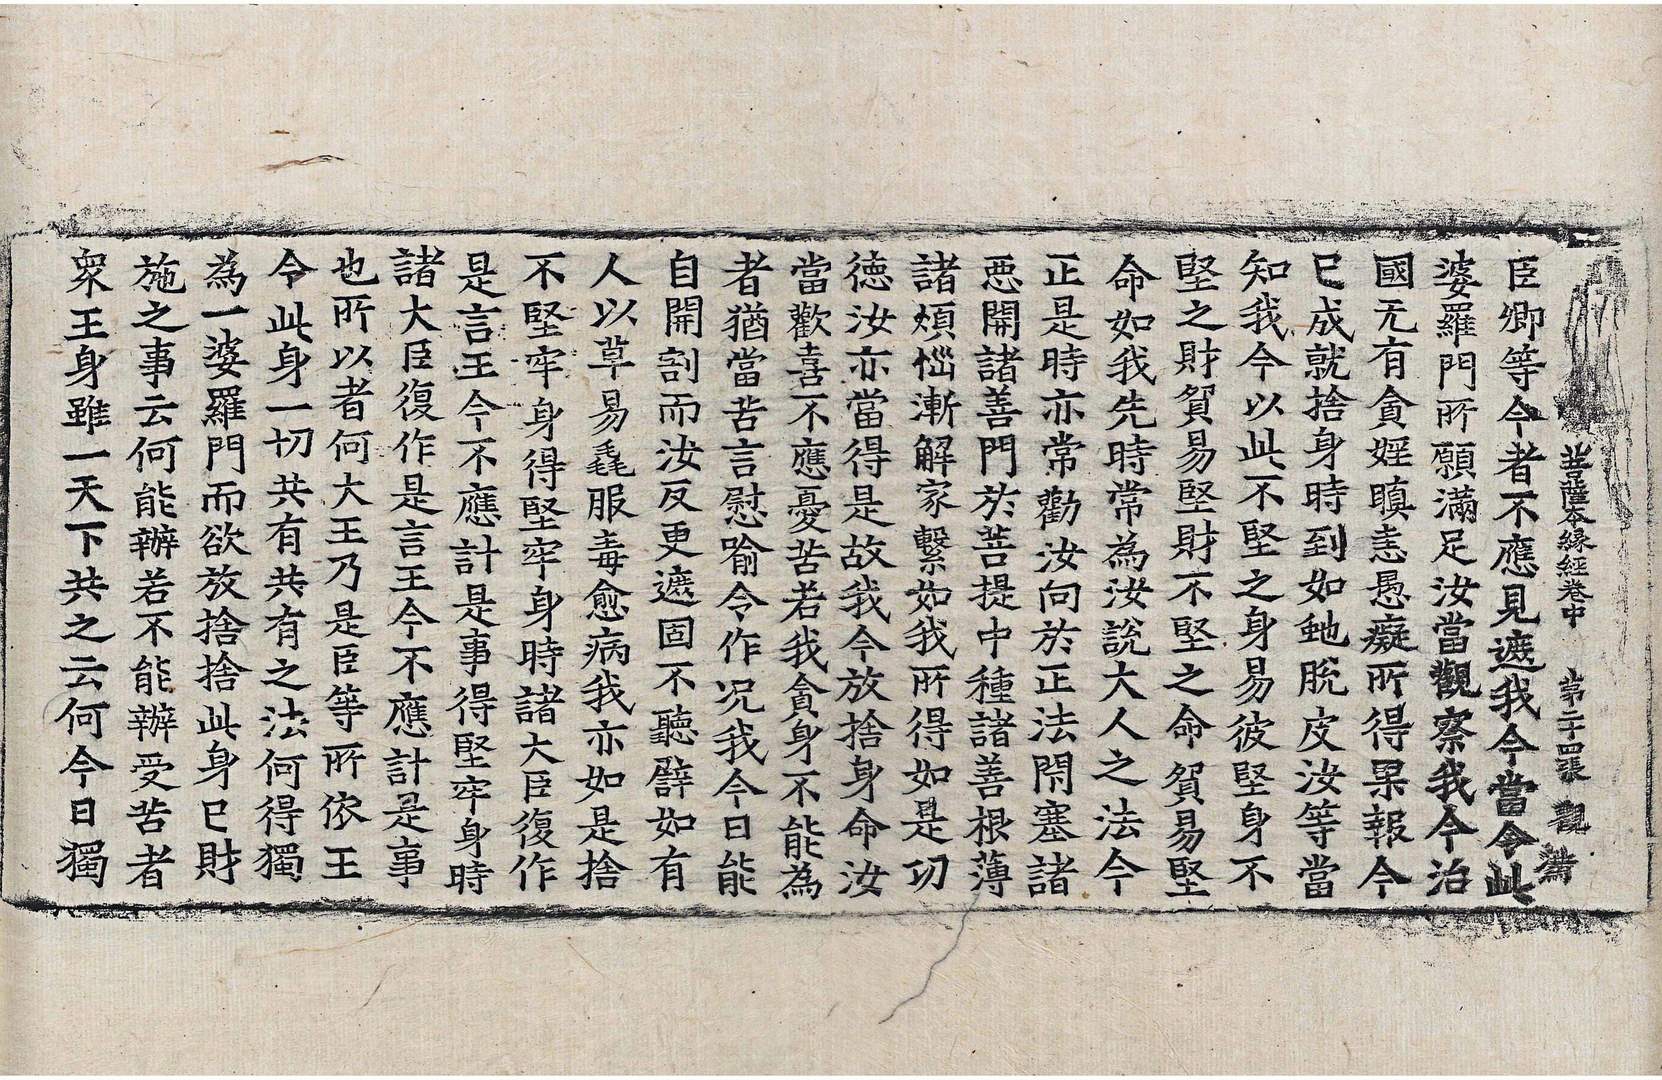 菩薩本緣經卷中 第二十四張 觀
臣卿等今者不應見遮我今當令此
婆羅門所願滿足汝當觀察我今治
國无有貪婬瞋恚愚癡所得果報今
已成就捨身時到如虵脫皮汝等當
知我今以此不堅之身易彼堅身不
堅之財貿易堅財不堅之命貿易堅
命如我先時常為汝說大人之法今
正是時亦常勸汝向於正法閇塞諸
惡開諸善門於菩提中種諸善根薄
諸煩惱漸解家繫如我所得如是功
德汝亦當得是故我今放捨身命汝
當歡喜不應憂苦若我貪身不能為
者猶當苦言慰喻令作况我今日能
自開割而汝反更遮固不聽譬如有
人以草易毳服毒愈病我亦如是捨
不堅牢身得堅牢身時諸大臣復作
是言王今不應計是事得堅牢身時
諸大臣復作是言王今不應計是事
也所以者何大王乃是臣等所依王
今此身一切共有共有之法何得獨
為一婆羅門而欲放捨捨此身已財
施之事云何能辦若不能辦受苦者
衆王身雖一天下共之云何今日獨